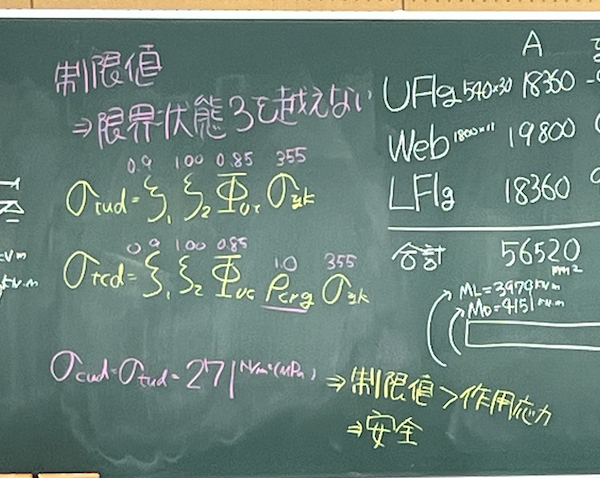 制限値
⇒限界状態3を越えない
0.9 1.00 0.85 355
σtud=ξ1 ξ2 Φut σyk
0.9 1.00 0.85 1.0 355
σcud=ξ1 ξ2 Φuc ρcrg σyk
σcud=σtud=271 N/mm²(MPa)
⇒制限値>作用応力
⇒安全
A
UFlg 540×30 18360
Web 1800×11 19800
LFlg 18360
合計 56520
mm²
ML=3979kN・m